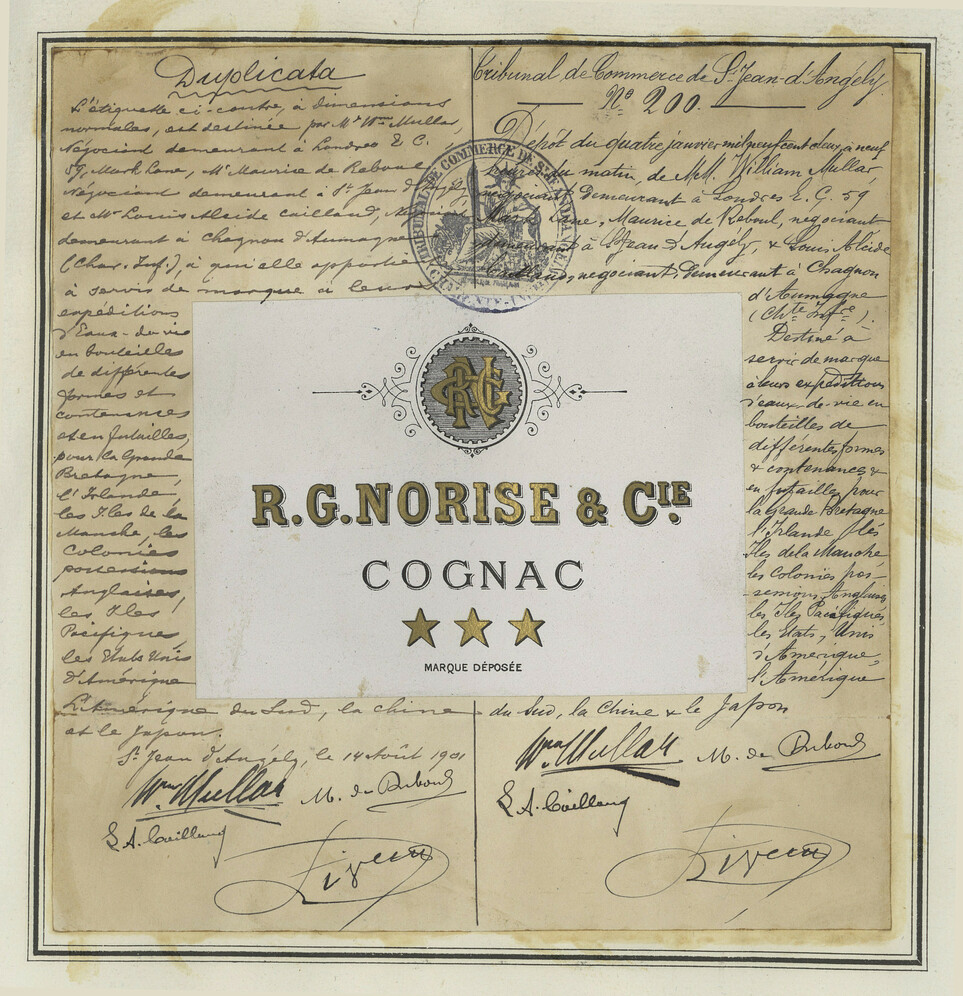 Duplicata
L'étiquette ci-contre, à dimensions
normales, est destinée par Mr Wm Mullar,
Négociant demeurant à Londres E. C.
59, Mark Lane, Mr Maurice de Reboul
Négociant demeurant à St Jean d'Angély
et Mr Louis Alcide Caillaud,
demeurant à Chagnon d'Aumagne
(Char. Inf.), à qui elle appartient
à servir de marque à leurs
expéditions
d'Eaux-de-vie
en bouteilles
de différentes
formes et
contenances
et en futailles,
pour la Grande
Bretagne,
l'Irlande,
les Iles de la
Manche, les
Colonies
possessions
Anglaises,
les Iles
Pacifiques,
les Etats Unis
d'Amérique
L'Amérique du Sud, la Chine
et le Japon.
St Jean d'Angély, le 14 Août 1901
Wm Mullar M. de Reboul
L. A. Caillaud
Tribunal de Commerce de St Jean-d'Angély.
No 200.
Dépôt du quatre janvier mil neuf cent deux, à neuf
heures du matin, de MM. William Mullar,
négociant demeurant à Londres E. C. 59
Mark Lane, Maurice de Reboul, négociant
demeurant à St Jean d'Angély, & Louis Alcide
Caillaud, négociant, demeurant à Chagnon
d'Aumagne
(Chte Infre).
Destiné à
servir de marque
à leurs expéditions
d'eaux-de-vie en
bouteilles de
différentes formes
& contenances &
en futailles pour
la Grande Bretagne
l'Irlande, les
Iles de la Manche
les Colonies pos-
sessions Anglaises
les Iles Pacifiques,
les Etats-Unis
d'Amérique,
l'Amérique
du Sud, la Chine & le Japon
Wm Mullar M. de Reboul
L. A. Caillaud
TRIBUNAL DE COMMERCE DE ST JEAN D'ANGELY
CHARENTE-INFRE
RNG
R.G.NORISE & CIE.
COGNAC
MARQUE DÉPOSÉE